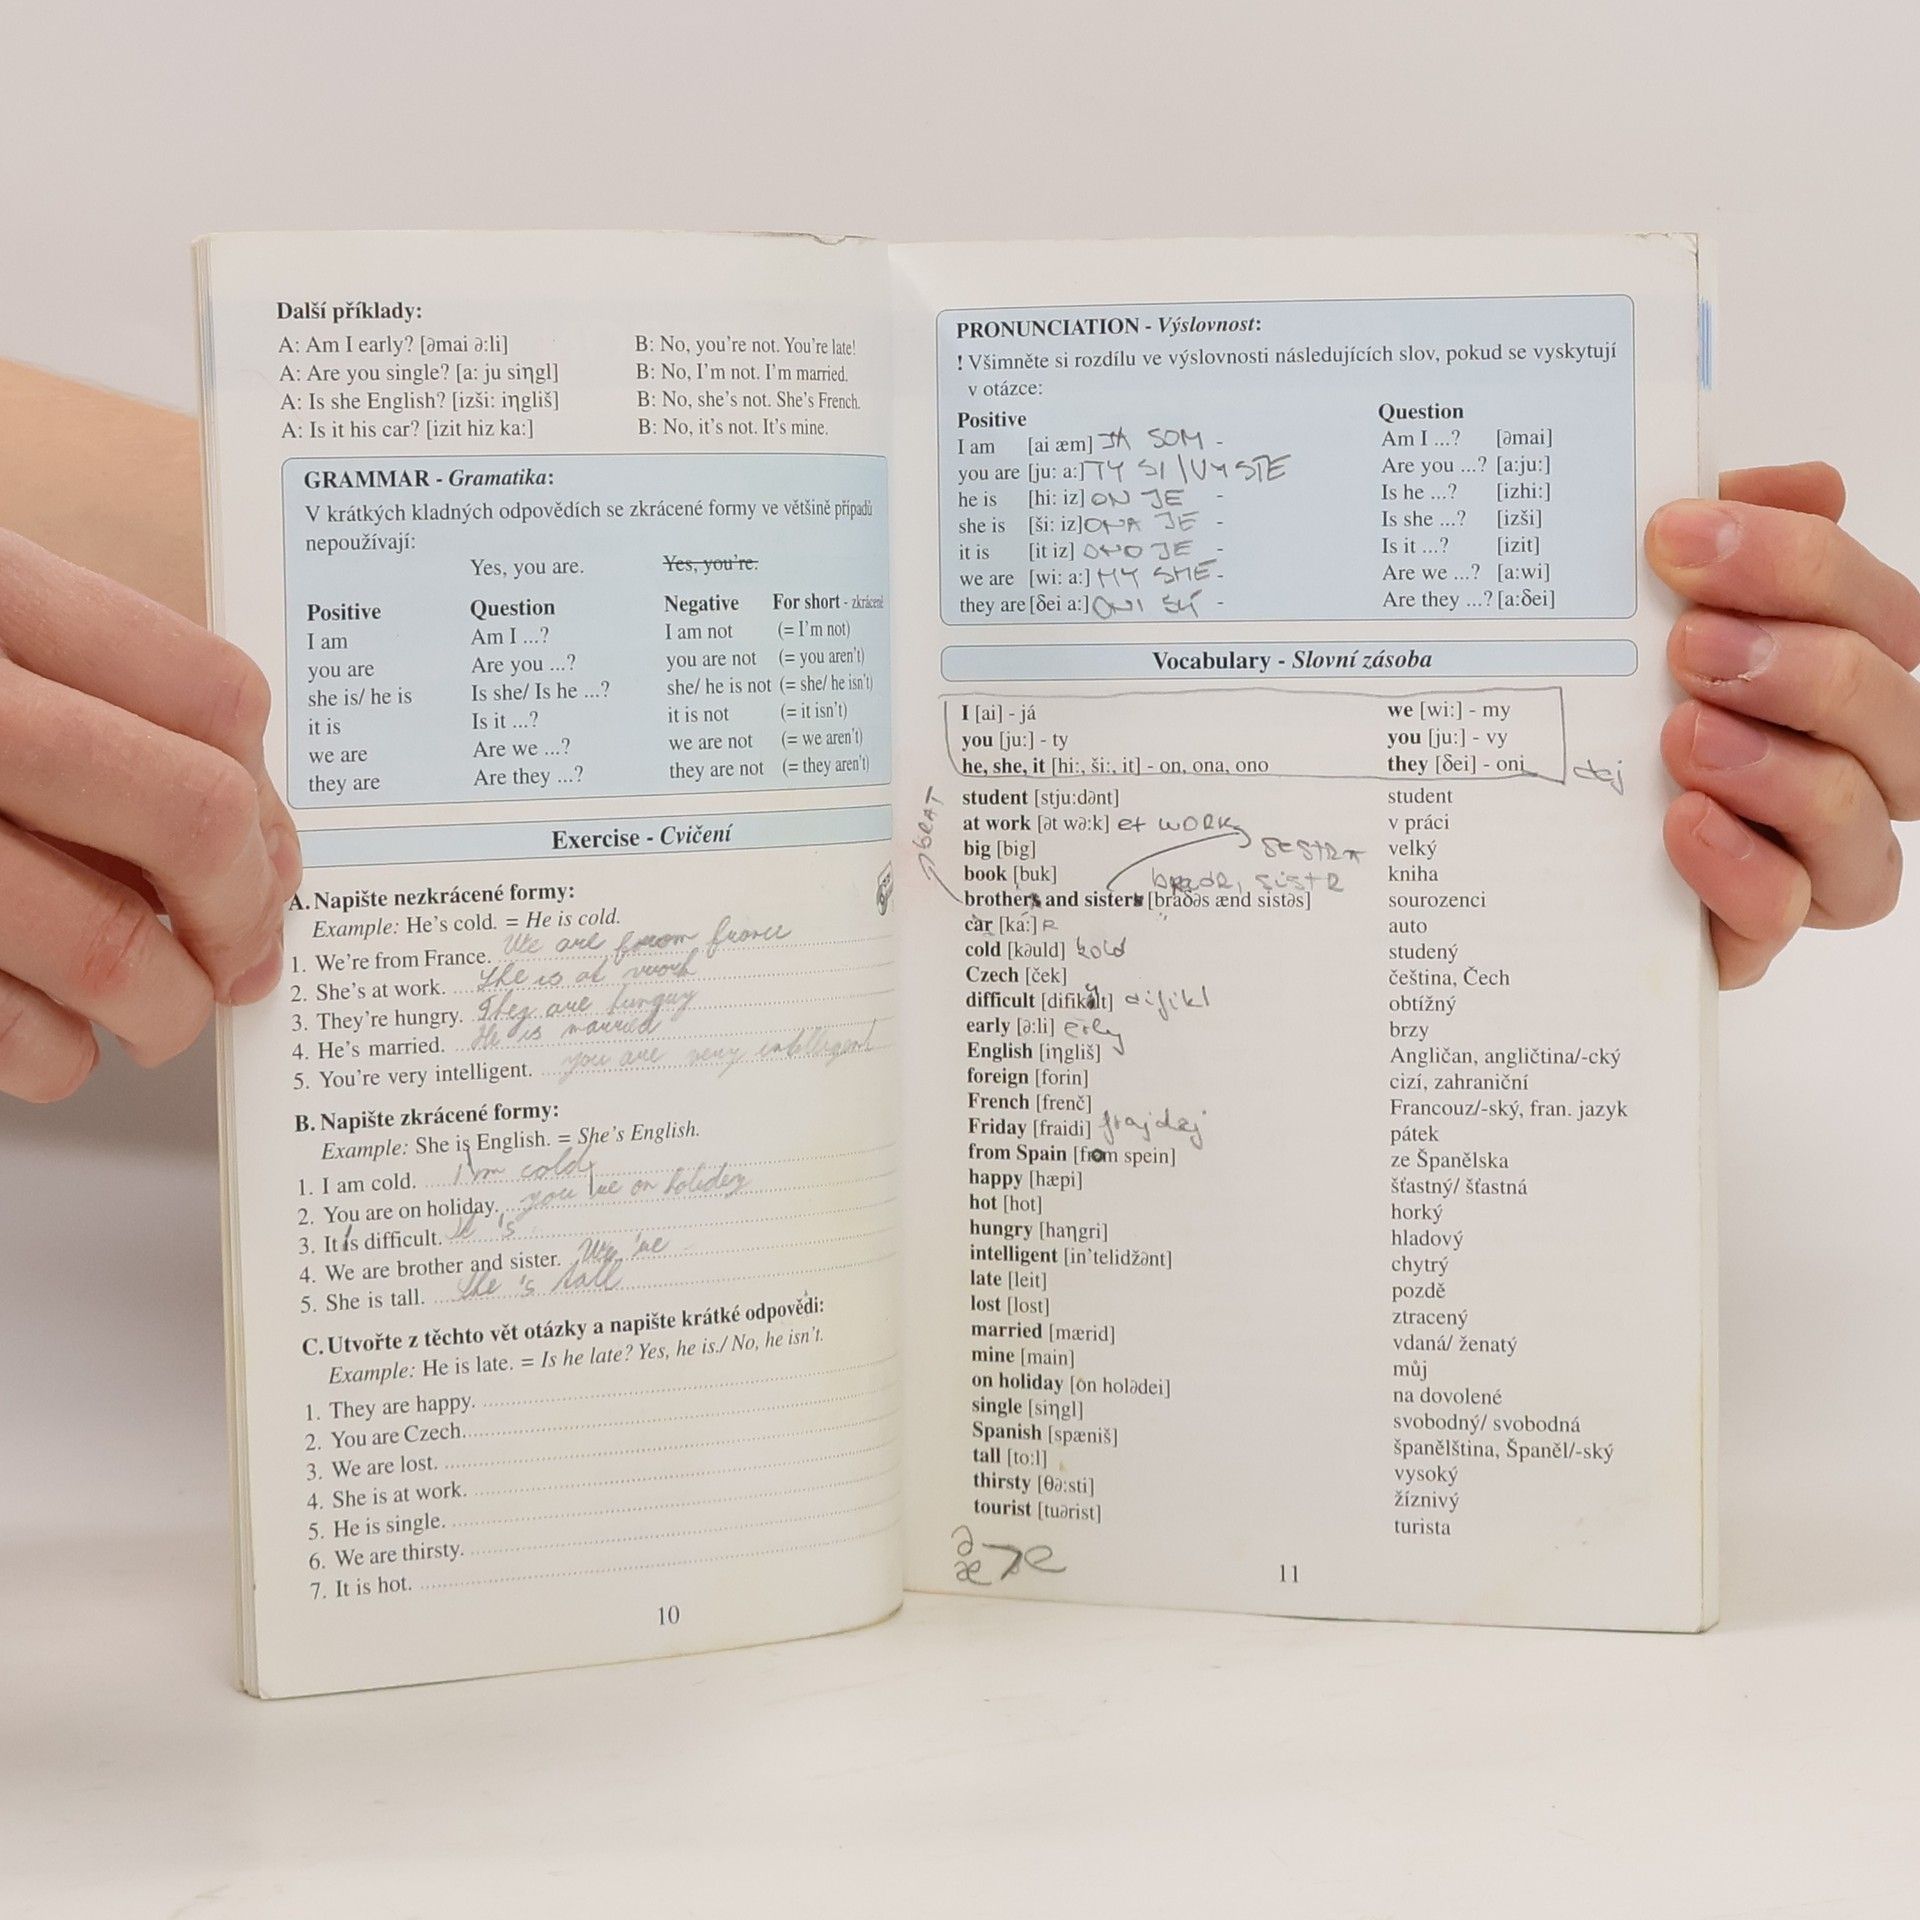 Další příklady:
A: Am I early? [əmai ə:li] B: No, you're not. You're late!
A: Are you single? [a: ju siŋgl] B: No, I'm not. I'm married.
A: Is she English? [izši: iŋgliš] B: No, she's not. She's French.
A: Is it his car? [izit hiz ka:] B: No, it's not. It's mine.
GRAMMAR - Gramatika:
V krátkých kladných odpovědích se zkrácené formy ve většině případů
nepoužívají:
Yes, you are. Yes, you're.
Positive Question Negative For short - zkráceně
I am Am I ...? I am not (= I'm not)
you are Are you ...? you are not (= you aren't)
she is/ he is Is she/ Is he ...? she/ he is not (= she/ he isn't)
it is Is it ...? it is not (= it isn't)
we are Are we ...? we are not (= we aren't)
they are Are they ...? they are not (= they aren't)
Exercise - Cvičení
A. Napište nezkrácené formy:
Example: He's cold. = He is cold.
1. We're from France. We are from france
2. She's at work. She is at work
3. They're hungry. They are hungry
4. He's married. He is married
5. You're very intelligent. you are very intelligent
B. Napište zkrácené formy:
Example: She is English. = She's English.
1. I am cold. I'm cold
2. You are on holiday. you 're on holidey
3. It is difficult. It 's
4. We are brother and sister. We 're
5. She is tall. She 's tall
C. Utvořte z těchto vět otázky a napište krátké odpovědi:
Example: He is late. = Is he late? Yes, he is./ No, he isn't.
1. They are happy.
2. You are Czech.
3. We are lost.
4. She is at work.
5. He is single.
6. We are thirsty.
7. It is hot.
10
PRONUNCIATION - Výslovnost:
! Všimněte si rozdílu ve výslovnosti následujících slov, pokud se vyskytují
v otázce:
Positive Question
I am [ai æm] JA SOM - Am I ...? [əmai]
you are [ju: a:] TY SI / VY STE Are you ...? [a:ju:]
he is [hi: iz] ON JE - Is he ...? [izhi:]
she is [ši: iz] ONA JE - Is she ...? [izši]
it is [it iz] ONO JE - Is it ...? [izit]
we are [wi: a:] MY SME - Are we ...? [a:wi]
they are [δei a:] ONI SÚ - Are they ...? [a:δei]
Vocabulary - Slovní zásoba
I [ai] - já we [wi:] - my
you [ju:] - ty you [ju:] - vy
he, she, it [hi:, ši:, it] - on, ona, ono they [δei] - oni dej
student [stju:dənt] student
at work [ət wə:k] et WORK v práci
big [big] SESTRA velký
book [buk] kniha
BRAT
brothers and sisters [braðəs ænd sistəs] sourozenci
car [ka:] R auto
cold [kəuld] kold studený
Czech [ček] čeština, Čech
difficult [difikəlt] difikl obtížný
early [ə:li] erly brzy
English [iŋgliš] Angličan, angličtina/-cký
foreign [forin] cizí, zahraniční
French [frenč] Francouz/-ský, fran. jazyk
Friday [fraidi] frajdej pátek
from Spain [from spein] ze Španělska
happy [hæpi] šťastný/ šťastná
hot [hot] horký
hungry [haŋgri] hladový
intelligent [in'telidžənt] chytrý
late [leit] pozdě
lost [lost] ztracený
married [mærid] vdaná/ ženatý
mine [main] můj
on holiday [on holədei] na dovolené
single [siŋgl] svobodný/ svobodná
Spanish [spæniš] španělština, Španěl/-ský
tall [to:l] vysoký
thirsty [θə:sti] žíznivý
tourist [tuərist] turista
ə
æ > e
11